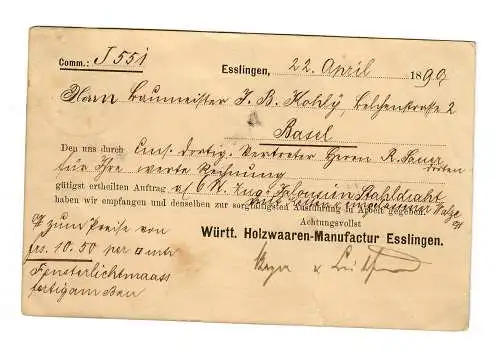 Comm.: J 551
Esslingen, 22. April 1890
Herrn Baumeister J. B. Kohly, Belchenstrasse 2
Basel
Den uns durch uns. dortig. Vertreter Herrn R. Saur, dorten
für Ihre werte Rechnung
gütigst ertheilten Auftrag a/ 6 St. Zug-Jalousien Stahldraht
haben wir empfangen und denselben zur sorgfältigsten Ausführung in Arbeit gegeben.
Achtungsvollst
Württ. Holzwaaren-Manufactur Esslingen.
zum Preise von
frs. 10.50 per mtr
Fensterlichtmaass
fertig am Bau